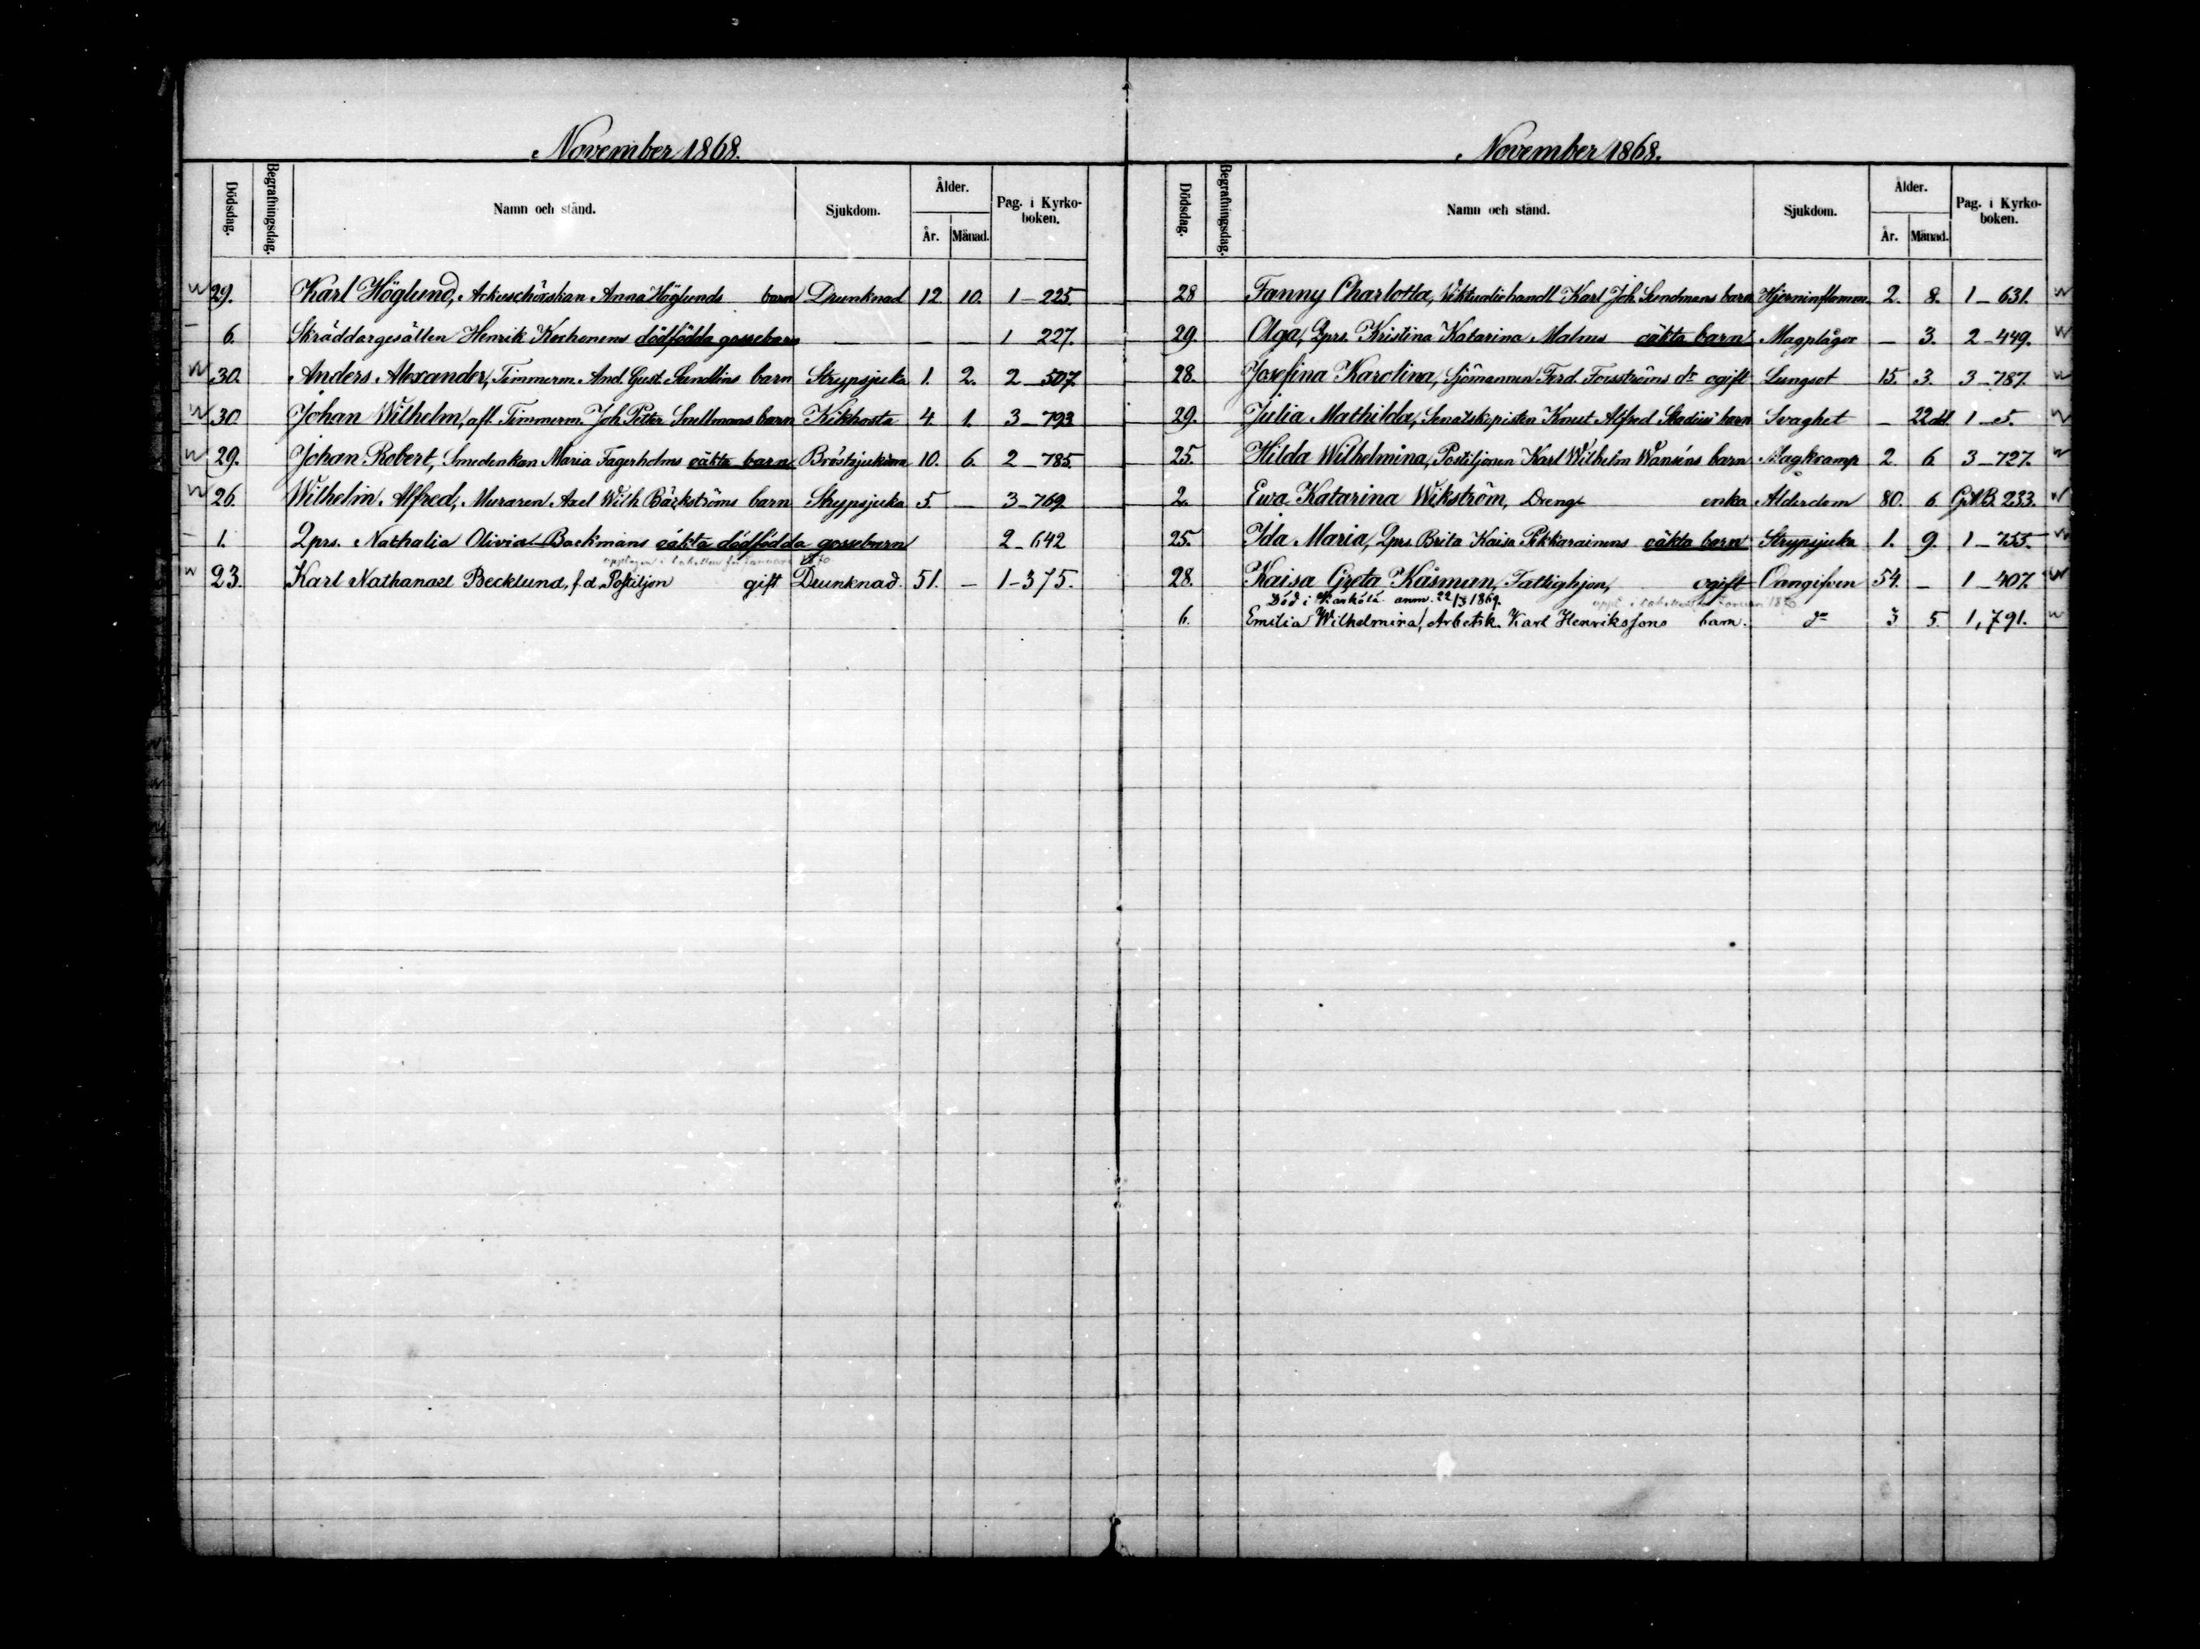 November 1868.
Dödsdag. Begrafningsdag. Namn och stånd. Sjukdom. Ålder. År. Månad. Pag. i Kyrko-boken.
29. Karl Höglund, Anna Höglunds barn Drunknad 12 10. 1 - 225
6. Skräddargesällen Henrik Korhonens dödfödda gossebarn — — — 1 227.
30. Anders Alexander, Timmerm. And. Gust. Sundlins barn Strypsjuka 1. 2. 2 - 507.
30 Johan Wilhelm, afl. Timmerm. Joh. Peter Snellmans barn Kikhosta 4. 1. 3 - 793
29. Johan Robert, Smedenkan Maria Fagerholms oäkta barn Bröstsjukdom 10. 6. 2 - 785.
26. Wilhelm Alfred, Muraren Axel Wilh. Bäckströms barn Strypsjuka 5 — 3 - 769
1. Qprs. Nathalia Olivia Backmans oäkta dödfödda gossebarn 2 - 642
23. Karl Nathanael Becklund, f.d. Postiljon gift Drunknad. 51. — 1 - 375.
November 1868.
Dödsdag. Begrafningsdag. Namn och stånd. Sjukdom. Ålder. År. Månad. Pag. i Kyrko-boken.
28 Fanny Charlotta, Viktualiehandl. Karl Joh. Sundmans barn Hjerninflamm. 2. 8. 1 - 631.
29. Olga, Qprs. Kristina Katarina Malms oäkta barn Magplågor — 3. 2 - 449.
28. Josefina Karolina, Sjömannen Ferd. Forsströms dr ogift Lungsot 15. 3. 3 - 787.
29. Julia Mathilda, Senatskopisten Knut Alfred Stadius' barn Svaghet — 22 d. 1 - 5.
25. Hilda Wilhelmina, Postiljonen Karl Wilhelm Wanséns barn Magkramp 2. 6. 3 - 727.
2. Ewa Katarina Wikström, Dreng enka Ålderdom 80. 6 G.K.B. 233.
25. Ida Maria, Qprs. Brita Kaisa Pikkarainens oäkta barn Strypsjuka 1. 9. 1 - 755.
28. Kaisa Greta Kåsman, Fattighjon, ogift Oangifven 54. — 1 - 407.
Död i Kärkölä anm. 22/3 1869.
6. Emilia Wilhelmina, Arbetsk. Karl Henrikssons barn. do 3 5. 1, 791.